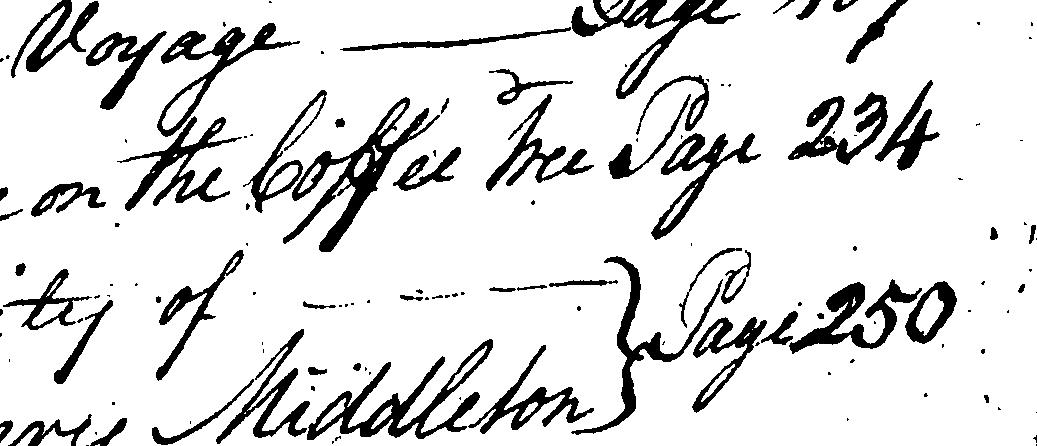 Voyage — Page
on the Coffee Tree Page 234
ity of — — — } Page 250
Middleton